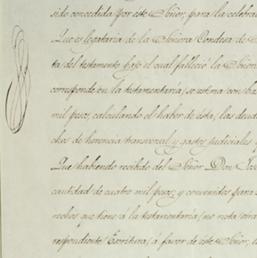 sido concedida por este Señor, para la celebra
Que es legataria de la Señora Condesa de
ta del testamento bajo el cual falleció la Señora
corresponde en la testamentaria, se estima con bas
mil pesos, calculando el haber de esta, las deud
chos de herencia transversal y gastos judiciales
Que habiendo recibido del Señor Don
cantidad de cuatro mil pesos, y convenidos para
rechos que tiene á la testamentaria,
respondiente Escritura á favor de este Señor,